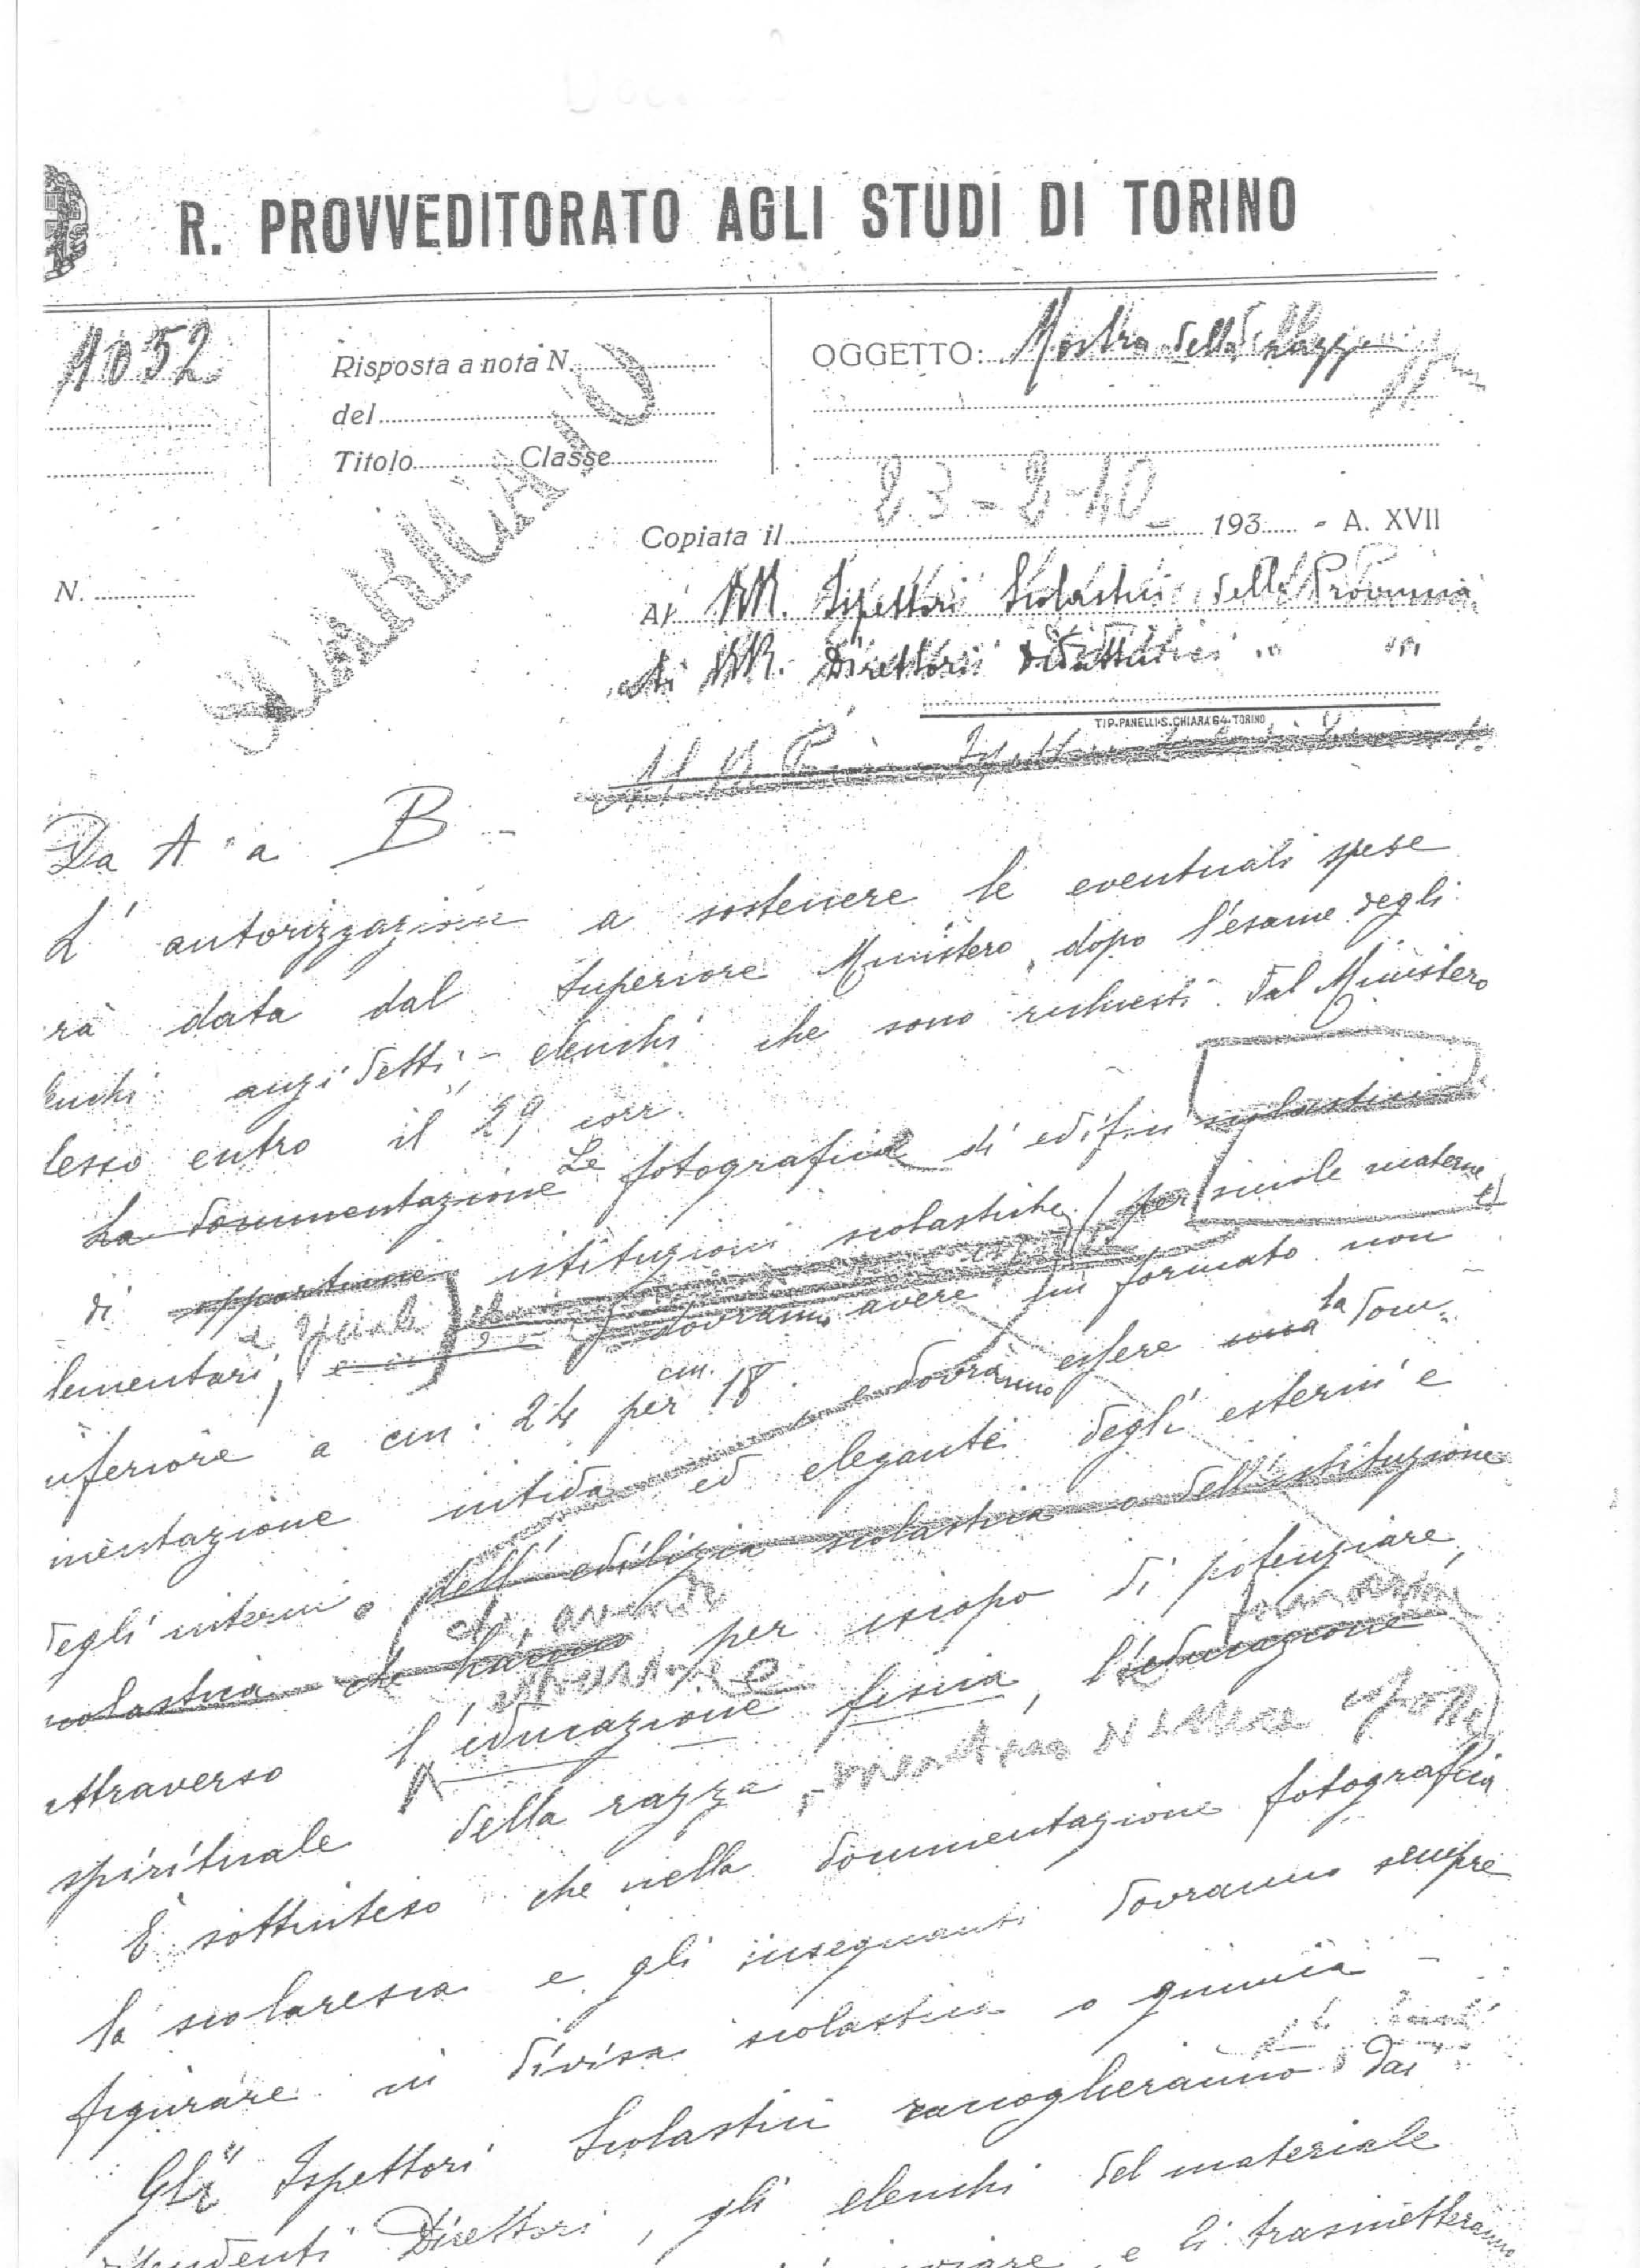 R. PROVVEDITORATO AGLI STUDI DI TORINO
1052
Risposta a nota N.
del
Titolo Classe
OGGETTO: Mostra della Razza
SCARICATO
Copiata il 23-2-40 193 - A. XVII
N.
Ai RR. Ispettori Scolastici della Provincia
Ai RR. Direttori Didattici " "
TIP. PANELLI-S. CHIARA 64-TORINO
Al R. Ispettore
Da A a B -
L' autorizzazione a sostenere le eventuali spese
rà data dal Superiore Ministero, dopo l'esame degli
lenchi anzidetti - elenchi che sono richiesti dal Ministero
tesso entro il 29 corr.
La documentazione Le fotografica di edifici scolastici
di opportune istituzioni scolastiche, (per scuole materne
e speciali
lementari, dovranno avere un formato non
nferiore a cm. 24 per cm. 18 e dovranno essere una la docu-
mentazione nitida ed elegante degli esterni e
degli interni, o dell' edilizia scolastica o dell'istituzione
colastica che hanno avendo per iscopo di potenziare,
attraverso l'educazione fisica, l'educazione formazione
spirituale della razza,
È sottinteso che nella documentazione fotografica
la scolaresca e gli insegnanti dovranno sempre
figurare in divisa scolastica o ginnica -
Gli Ispettori Scolastici raccoglieranno dai
dipendenti Direttori, gli elenchi del materiale
e li trasmetteranno